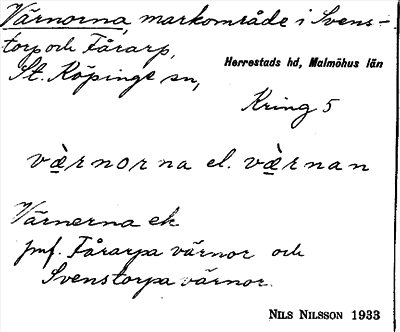 Värnorna, markområde i Svens-
torp och Fårarp,
St. Köpinge sn,
Herrestads hd, Malmöhus län
Kring 5
væ̀rnorna el. væ̀rnan
Värnerna ek
jmf. Fårarpa värnor och
Svenstorpa värnor.
NILS NILSSON 1933